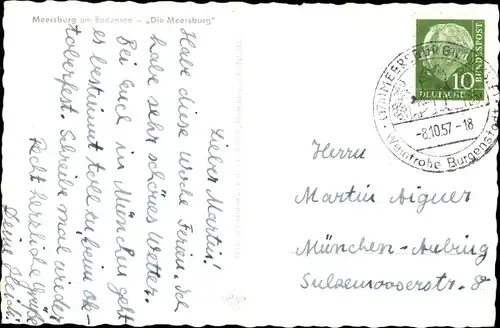 Meersburg am Bodensee – „Die Meersburg"
Lieber Martin!
Habe diese Woche Ferien. Ich
habe sehr schönes Wetter.
Bei Euch in München geht
es bestimmt toll zu beim Ok-
toberfest. Schreibe mal wieder
Recht herzliche Grüße
Deine
DEUTSCHE
BUNDESPOST
10
MEERSBURG
-8.10.57-18
Weinfrohe Burgenstadt
Herrn
Martin Aigner
München-Aubing
Sulzemooserstr. 8